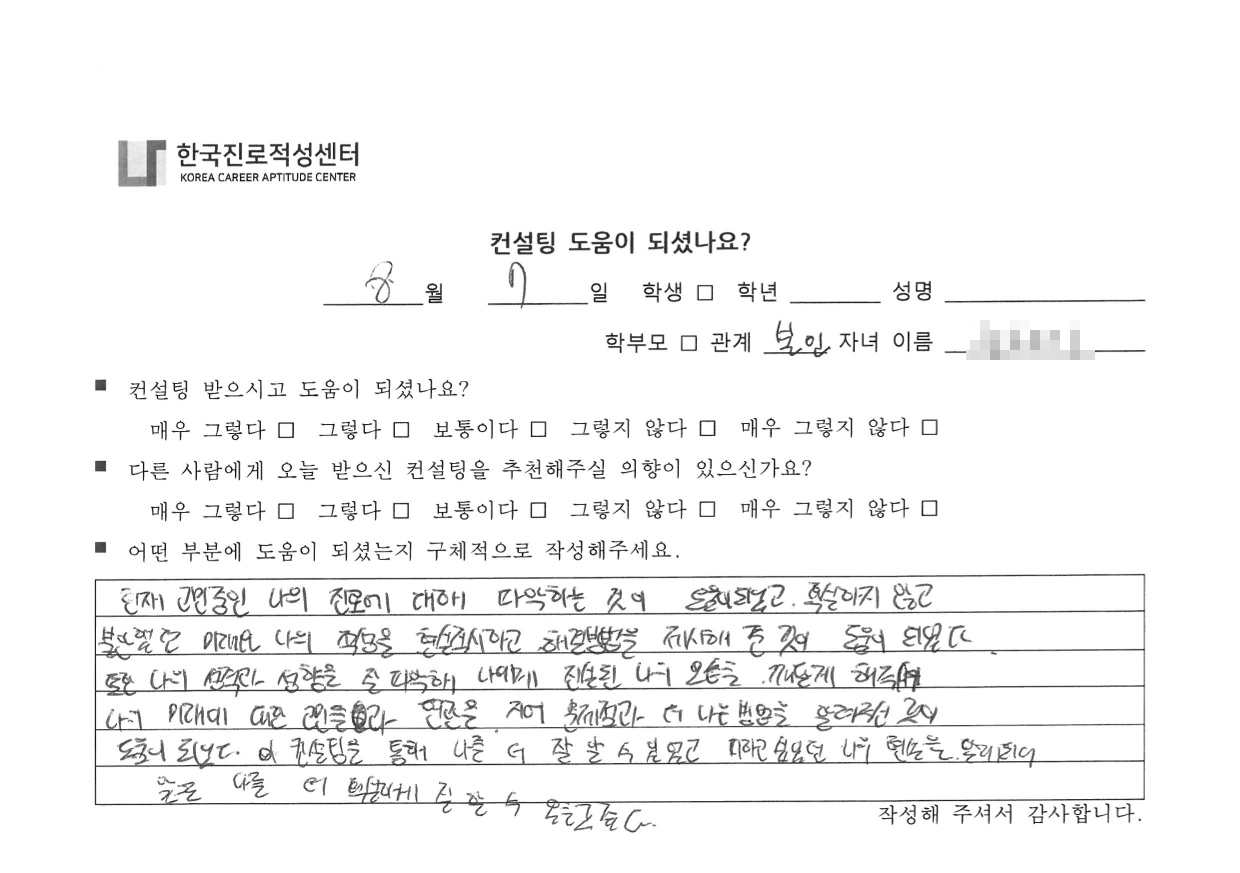 한국진로적성센터
KOREA CAREER APTITUDE CENTER
컨설팅 도움이 되셨나요?
8 월 7 일 학생 □ 학년 성명
학부모 □ 관계 본인 자녀 이름
■ 컨설팅 받으시고 도움이 되셨나요?
매우 그렇다 □ 그렇다 □ 보통이다 □ 그렇지 않다 □ 매우 그렇지 않다 □
■ 다른 사람에게 오늘 받으신 컨설팅을 추천해주실 의향이 있으신가요?
매우 그렇다 □ 그렇다 □ 보통이다 □ 그렇지 않다 □ 매우 그렇지 않다 □
■ 어떤 부분에 도움이 되셨는지 구체적으로 작성해주세요.
현재 고민중인 나의 진로에 대해 파악하는 것이 도움이 되었고. 확실하지 않고
나의 적성을 해결방법을 제시해 준 것이 도움이 되었다.
또한 나의 성격과 성향을 잘 파악해 나에게 진실된 나의 모습을 깨닫게 해주며
나의 미래에 대한 고민들과 현실을 더 나은 방법을 알려주신 것이
도움이 되었다. 이 컨설팅을 통해 나를 더 잘 알 수 나의 현실을
나를 더 확실하게 잘 알 수
작성해 주셔서 감사합니다.